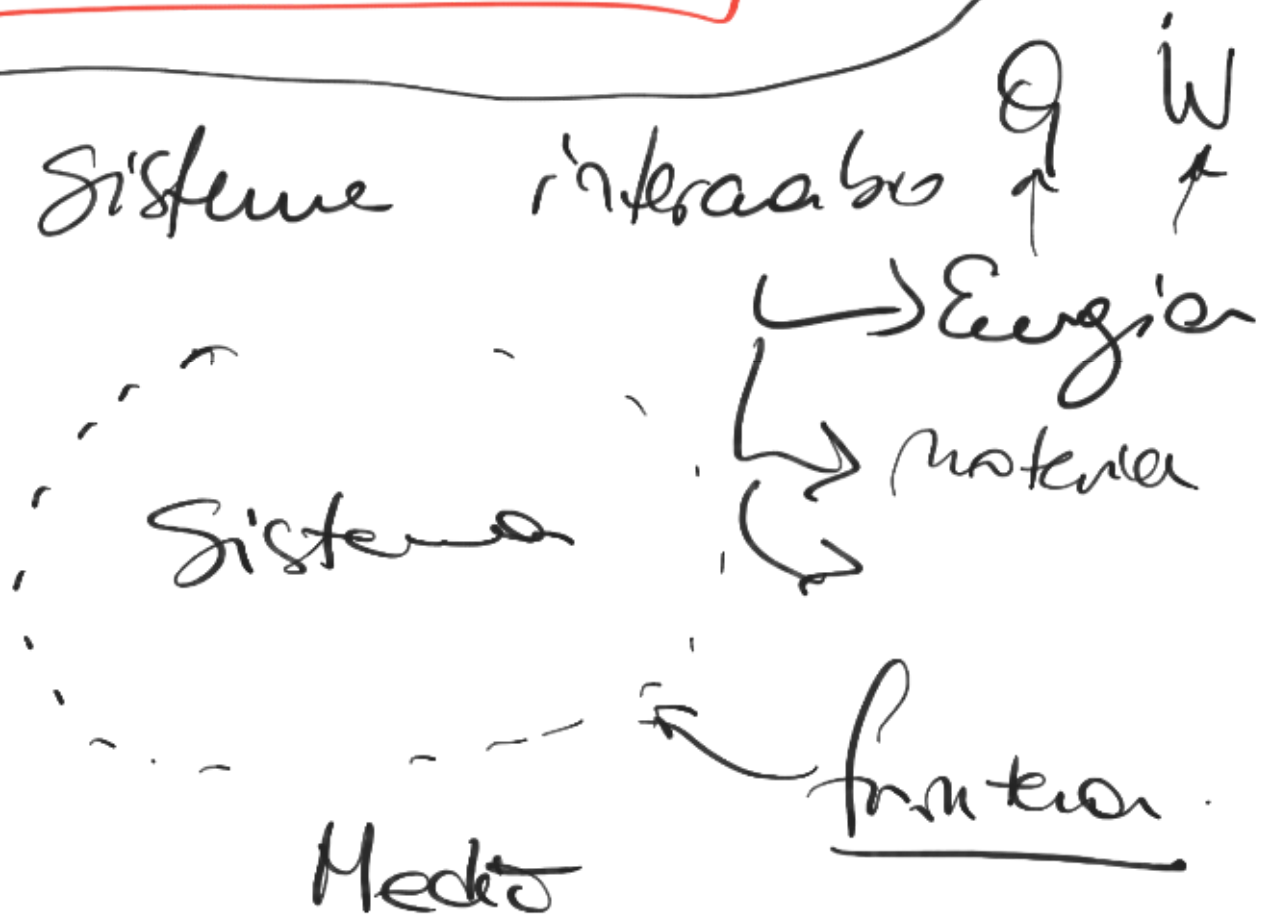 Q Ẇ
Sistema intercambio
Energia
materia
Sistema
frontera
Medio